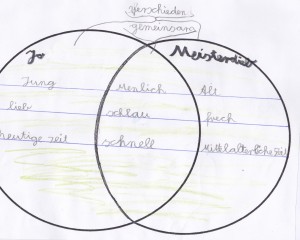 verschieden
gemeinsam
Jo Meisterdieb
Jung menlich Alt
lieb schlau frech
heutige zeit schnell Mittlalterliche Zeit